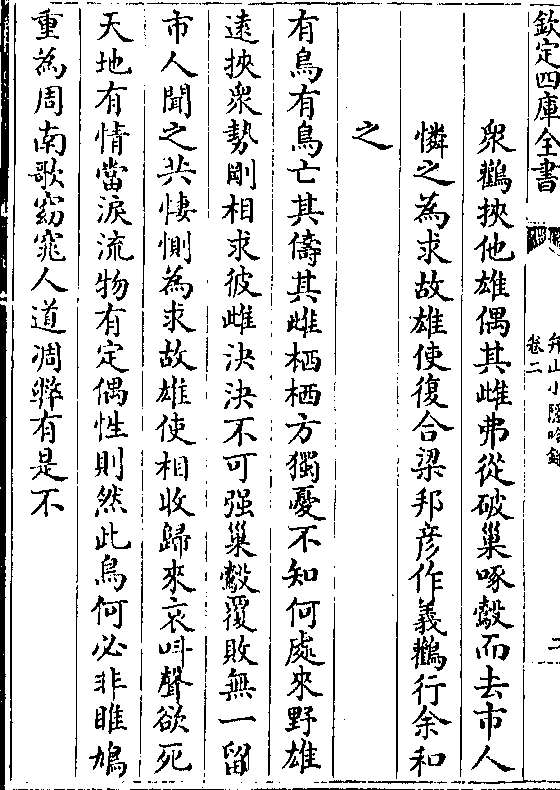 欽定四庫全書
卷二
衆鸛挾他雄偶其雌弗從破巢啄鷇而去市人
憐之為求故雄使復合梁邦彦作義鸛行余和
之
有鳥有鳥亡其儔其雌栖栖方獨憂不知何處來野雄
逺挾衆勢剛相求彼雌決決不可强巢鷇覆敗無一留
市人聞之共悽惻為求故雄使相收歸來哀呌聲欲死
天地有情當淚流物有定偶性則然此鳥何必非雎鳩
重為周南歌窈窕人道凋弊有是不